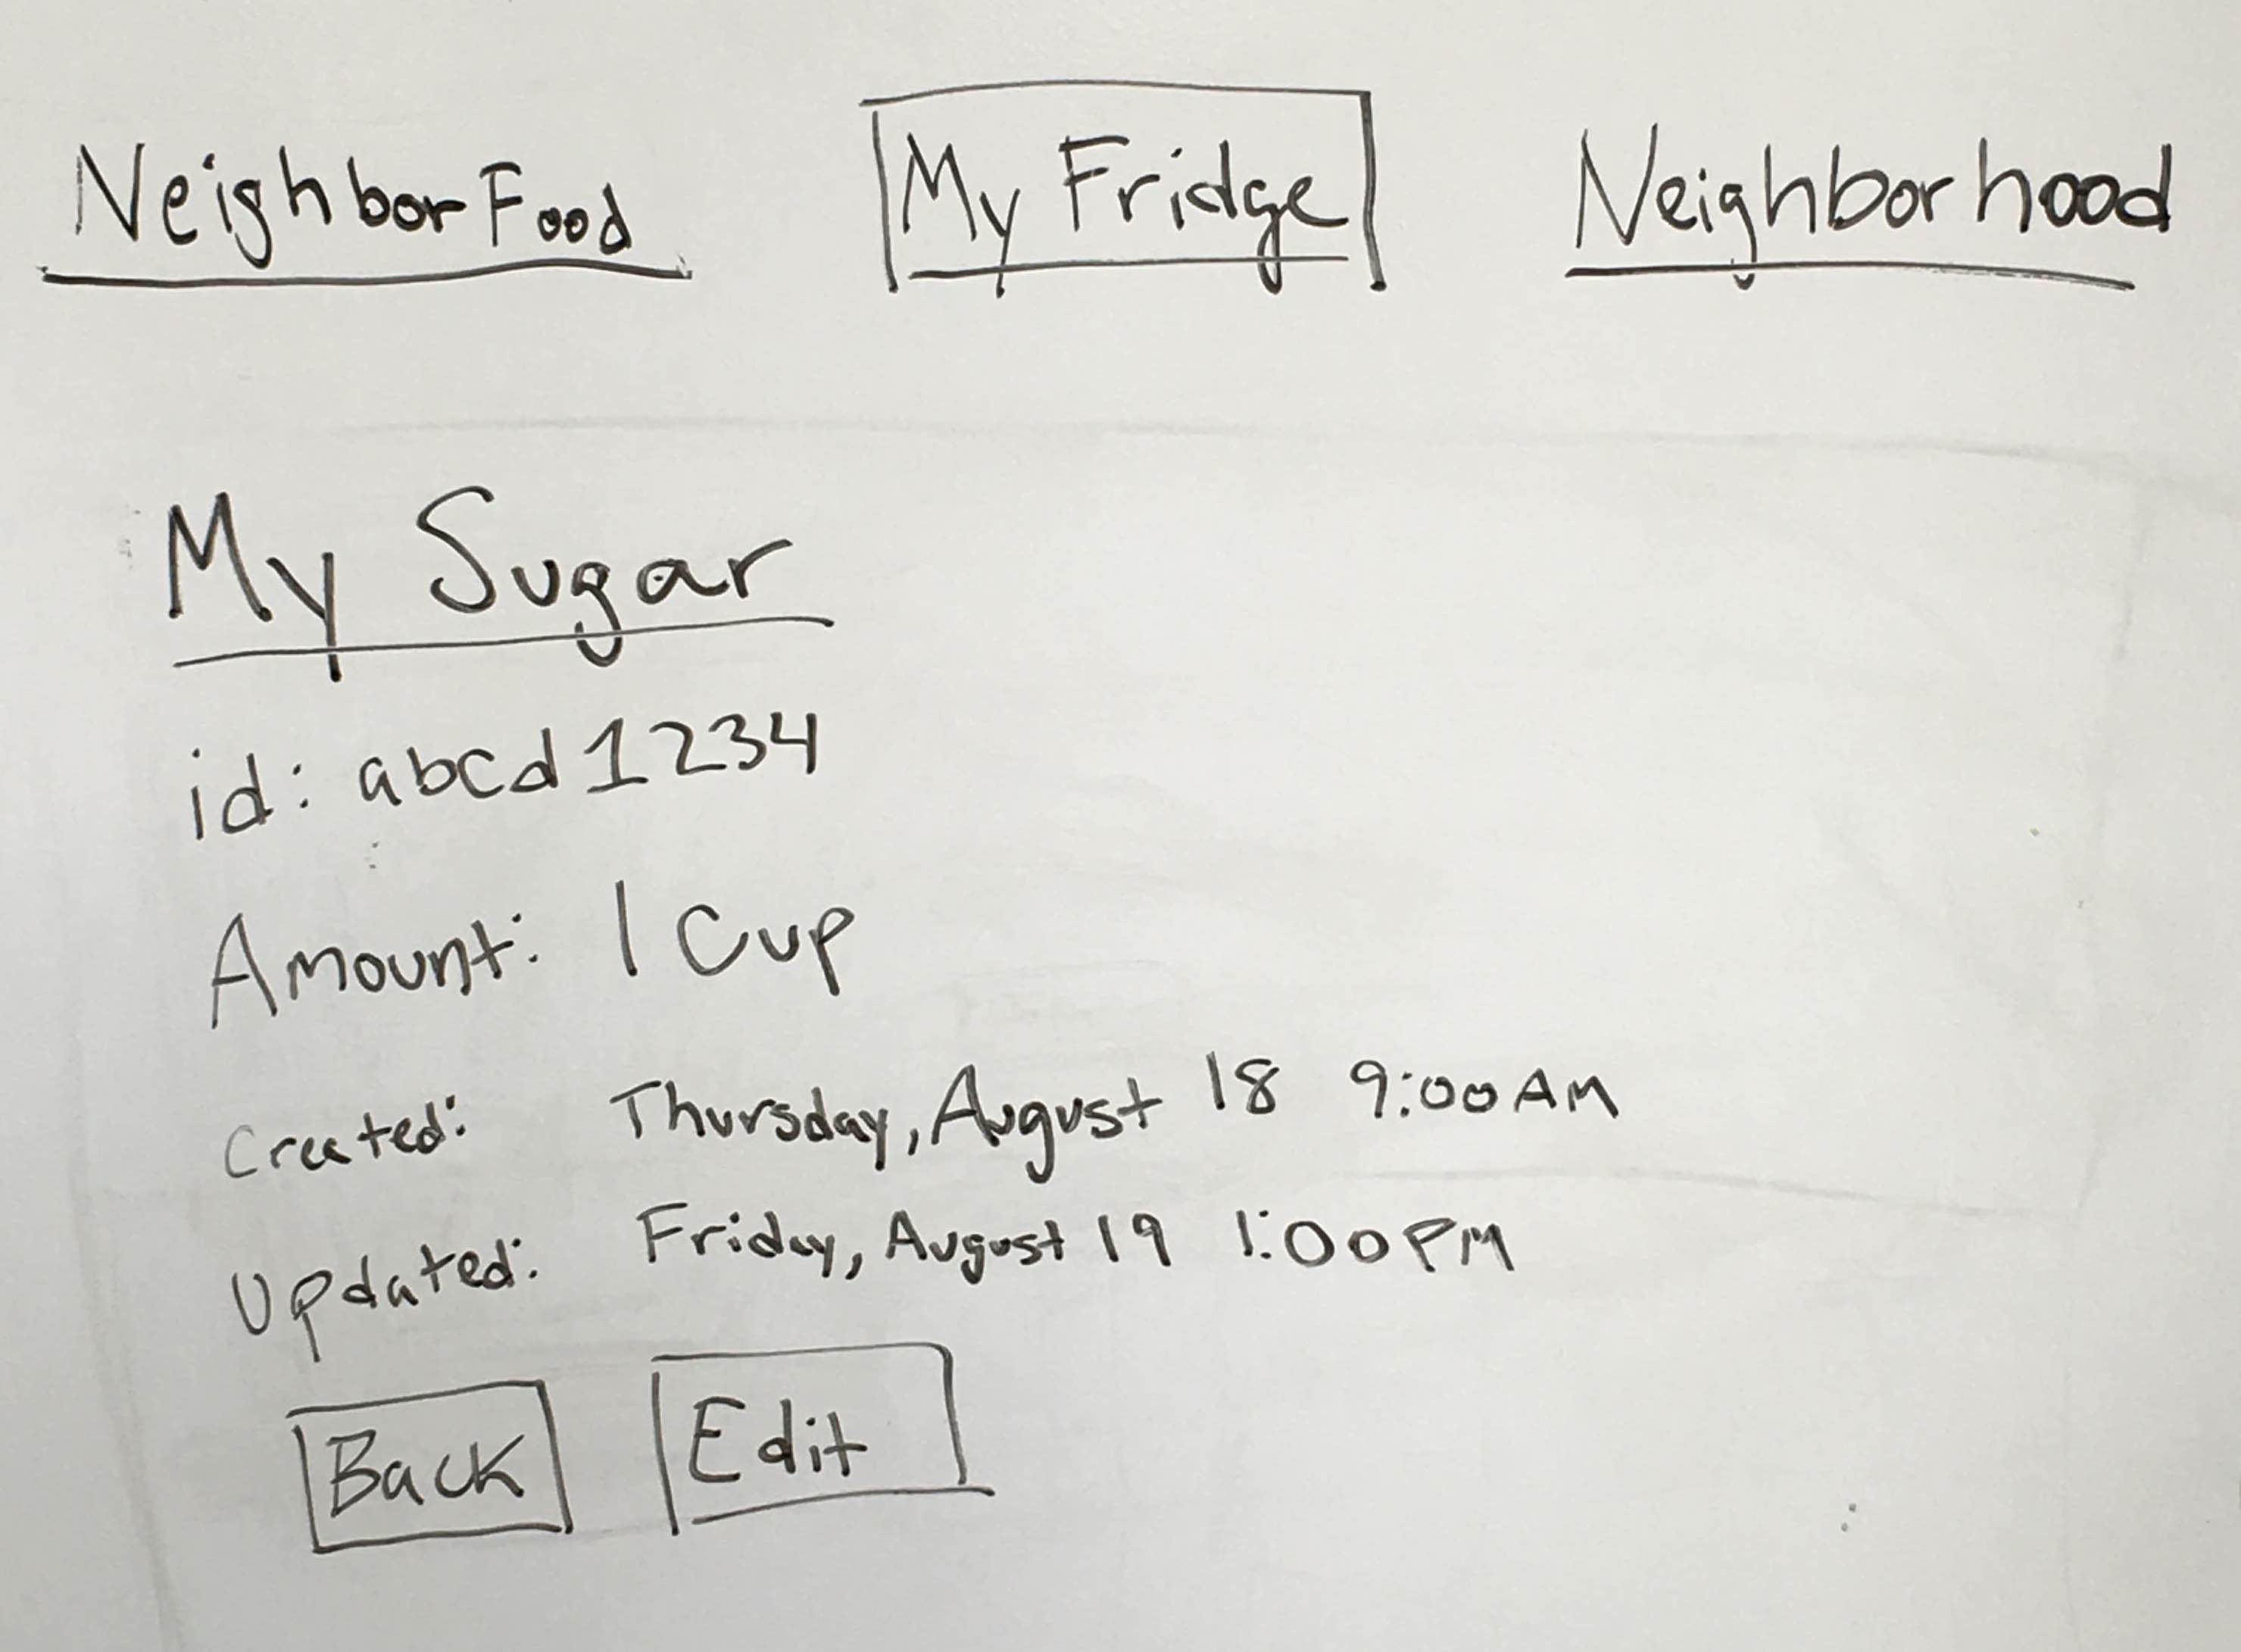 NeighborFood My Fridge Neighborhood
My Sugar
id: abcd1234
Amount: 1 Cup
Created: Thursday, August 18 9:00 AM
Updated: Friday, August 19 1:00 PM
Back Edit